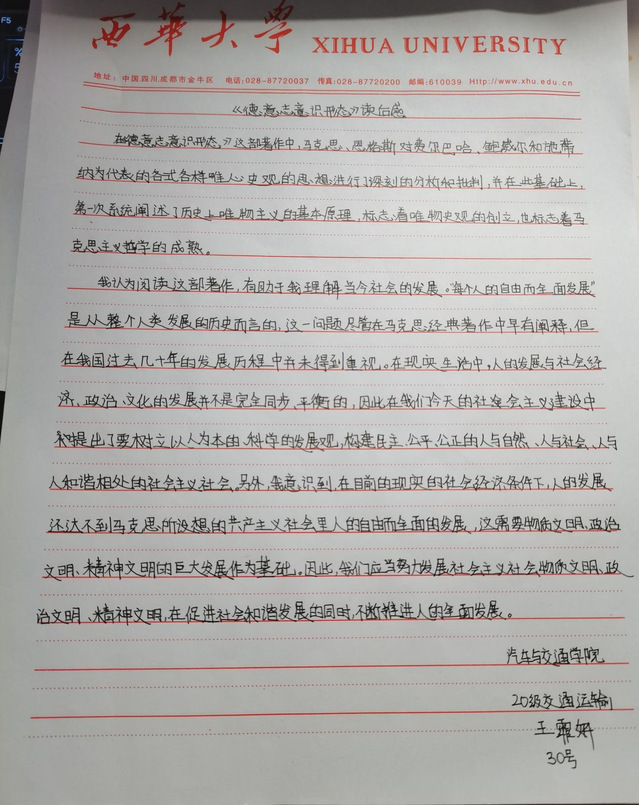 F5
%
5
西華大學 XIHUA UNIVERSITY
地址:中国.四川.成都市金牛区 电话:028-87720037 传真:028-87720200 邮编:610039 Http://www.xhu.edu.cn
《德意志意识形态》读后感
在《德意志意识形态》这部著作中,马克思、恩格斯对费尔巴哈、鲍威尔和施蒂
纳为代表的各式各样唯心史观的思想进行了深刻的分析和批判,并在此基础上,
第一次系统阐述了历史唯物主义的基本原理,标志着唯物史观的创立,也标志着马
克思主义哲学的成熟。
我认为阅读这部著作,有助于我理解当今社会的发展。“每个人的自由而全面发展”
是从整个人类发展的历史而言的,这一问题尽管在马克思经典著作中早有阐释,但
在我国过去几十年的发展历程中并未得到重视。在现实生活中,人的发展与社会经
济、政治、文化的发展并不是完全同步、平衡的,因此在我们今天的社会主义建设中
提出了要树立以人为本的、科学的发展观,构建民主、公平、公正的人与自然、人与社会、人与
人和谐相处的社会主义社会。另外,我意识到,在目前的现实的社会经济条件下,人的发展
还达不到马克思所设想的共产主义社会里人的自由而全面的发展,这需要物质文明、政治
文明、精神文明的巨大发展作为基础。因此,我们应当努力发展社会主义社会物质文明、政
治文明、精神文明,在促进社会和谐发展的同时,不断推进人的全面发展。
汽车与交通学院
20级交通运输
王霏妍
30号